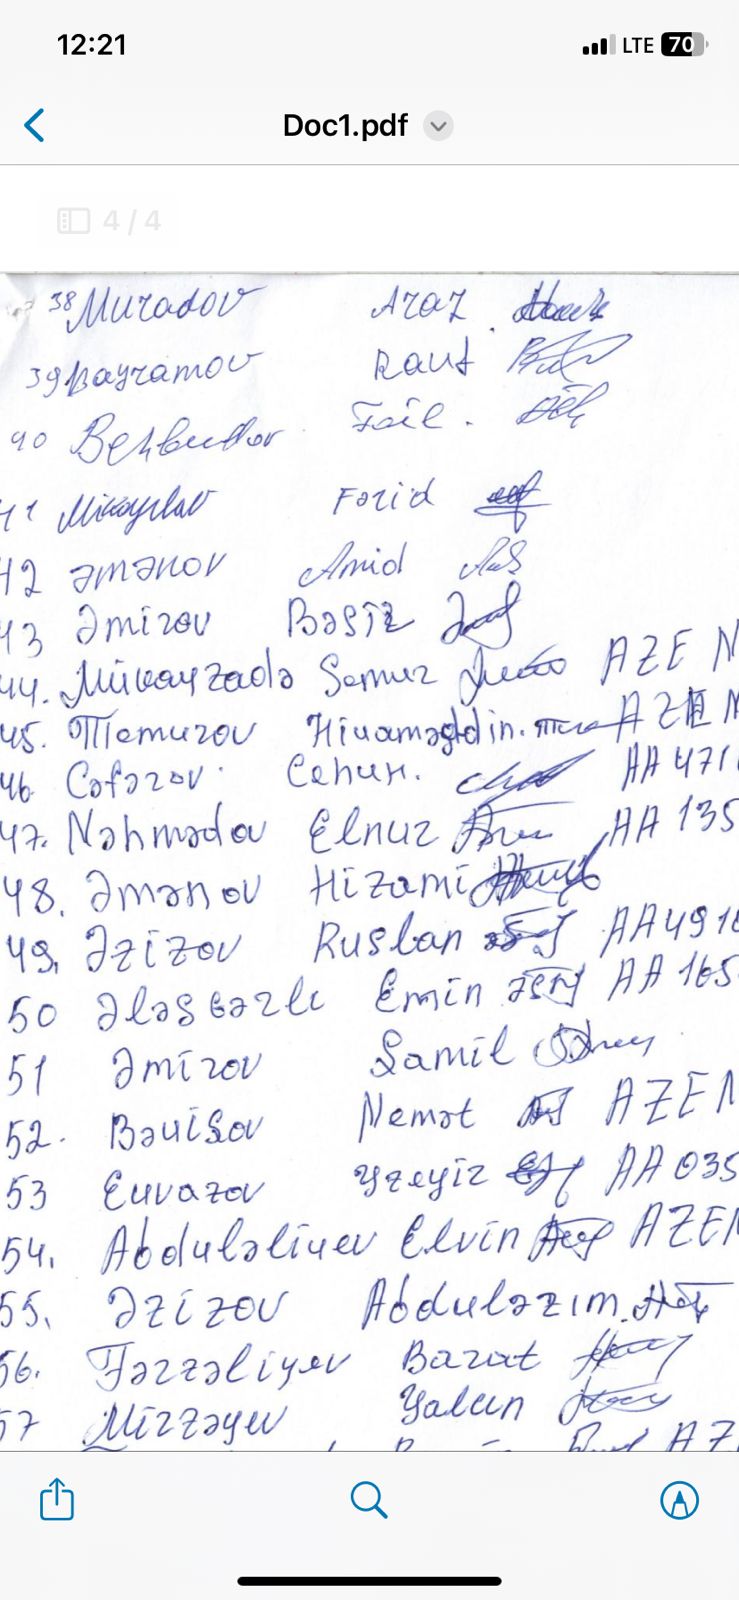 12:21 LTE 70
Doc1.pdf
4/4
38 Muradov Araz
39 Bayramov Rauf
40 Behbudov Fail.
41 Mikayılov Fərid
42 Əmənov Amid
43 Əmirov Bəşir
44. Mükayzadə Semur AZE N
45. Temurov AZE N
46 Cəfərov Cehun. AA 471
47. Nəhmədov Elnur AA 135
48. Əmənov Nizami
49. Əzizov Ruslan AA4916
50 Ələsgərli Emin AA 165
51 Əmirov Şamil
52. Nemət AZEN
53 Euvazov Yzeyir AA 035
54. Abduləliyev Elvin AZEN
55. Əzizov Abduləzım.
56. Fərzəliyev Barat
57 Mirzəyev Yalçın
AZ